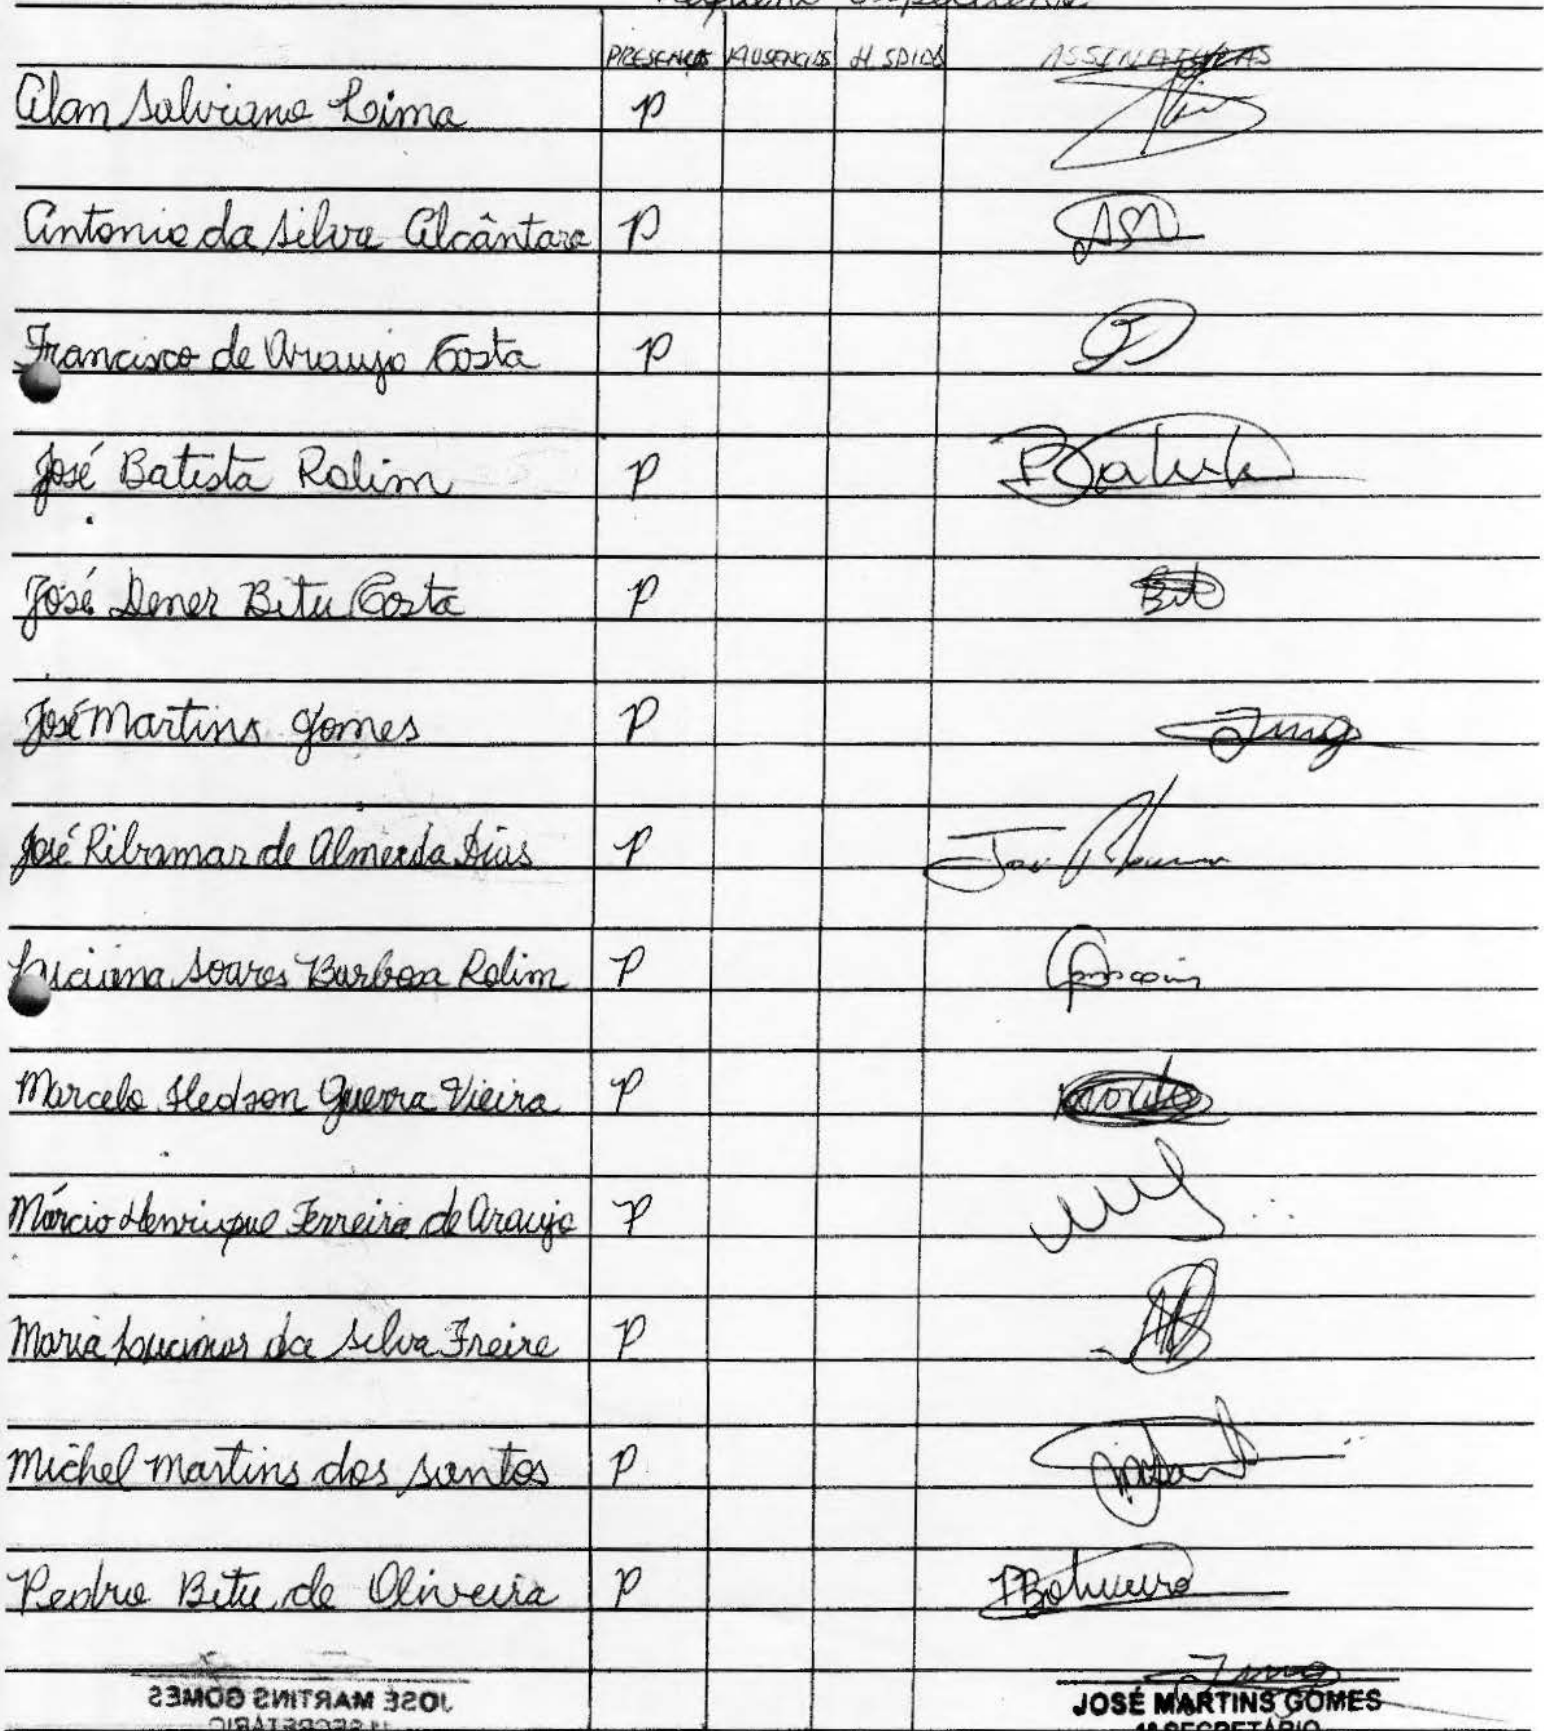 Pequeno Expediente
PRESENÇAS AUSENCIAS H. SAIDA ASSINATURAS
Alan Salviano Lima P
Antonio da Silva Alcântara P
Francisco de Araujo Costa P
José Batista Rolim P Batista
José Dener Bitu Costa P Bitu
José Martins Gomes P Jmg
José Ribamar de Almeida Dias P José Ribamar
Luciana Soares Barbosa Rolim P
Marcelo Hedson Guerra Vieira P
Márcio Henrique Ferreira de Araujo P
Maria Lucimar da Silva Freire P
Michel Martins dos Santos P
Pedro Bitu de Oliveira P PBoliveira
JOSÉ MARTINS GOMES JOSÉ MARTINS GOMES
1º SECRETÁRIO 1º SECRETÁRIO